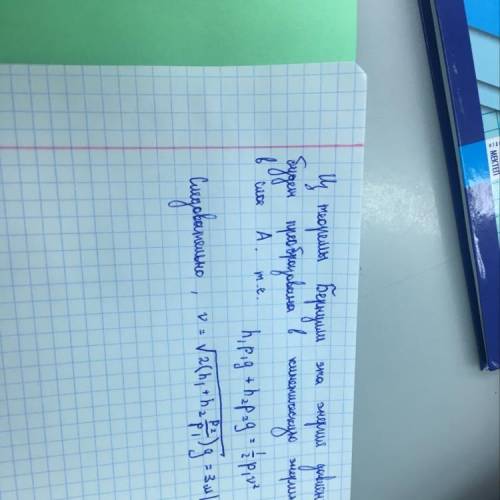 Из теоремы Бернулли эта энергия давлен
будет преобразована в кинетическую энерги
в слое А. т.е.
h₁ρ₁g + h₂ρ₂g = ½ρ₁v²
Следовательно, v = √(2(h₁ + h₂ ρ₂/ρ₁)g) = 3 м/
МЕКТЕП